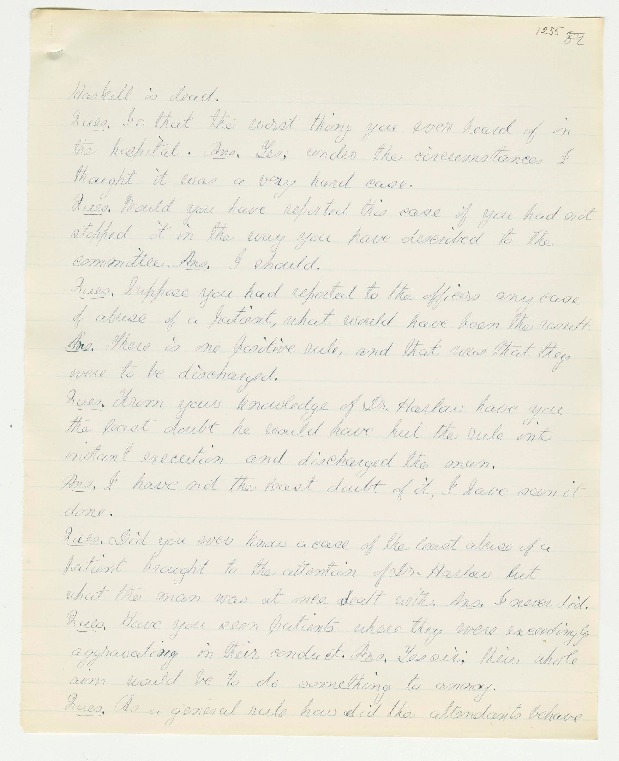 1255
52
Haskell is dead.
Ques. Is that the worst thing you ever heard of in
the hospital. Ans. Yes, under the circumstances I
thought it was a very hard case.
Ques. Would you have reported this case if you had not
stopped it in the way you have described to the
committee. Ans. I should.
Ques. Suppose you had reported to the officers any case
of abuse of a patient, what would have been the result.
Ans. There is one positive rule, and that was that they
were to be discharged.
Ques. From your knowledge of Dr. Harlow have you
the least doubt he would have put the rule into
instant execution and discharged the man.
Ans. I have not the least doubt of it, I have seen it
done.
Ques. Did you ever know a case of the least abuse of a
patient brought to the attention of Dr. Harlow but
what the man was at once dealt with. Ans. I never did.
Ques. Have you seen patients where they were exceedingly
aggravating in their conduct. Ans. Yes sir; their whole
aim would be to do something to annoy.
Ques. As a general rule how did the attendants behave